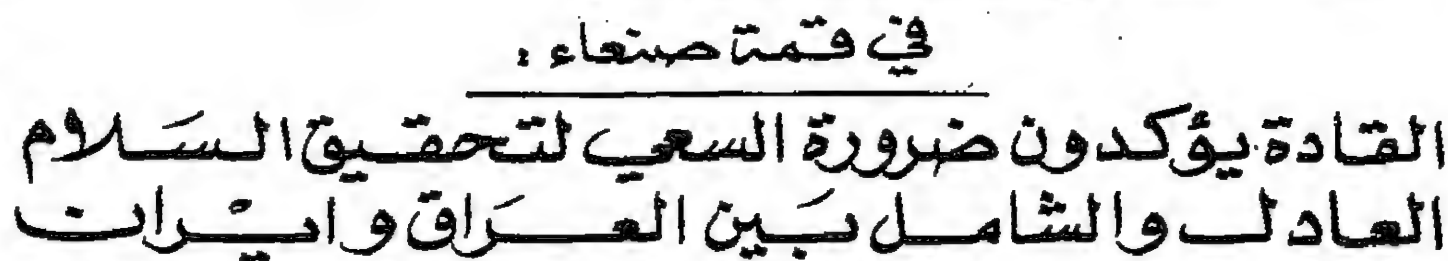 في قمة صنعاء :
القادة يؤكدون ضرورة السعي لتحقيق السَلام
العادل والشامل بَين العَراق وايْران